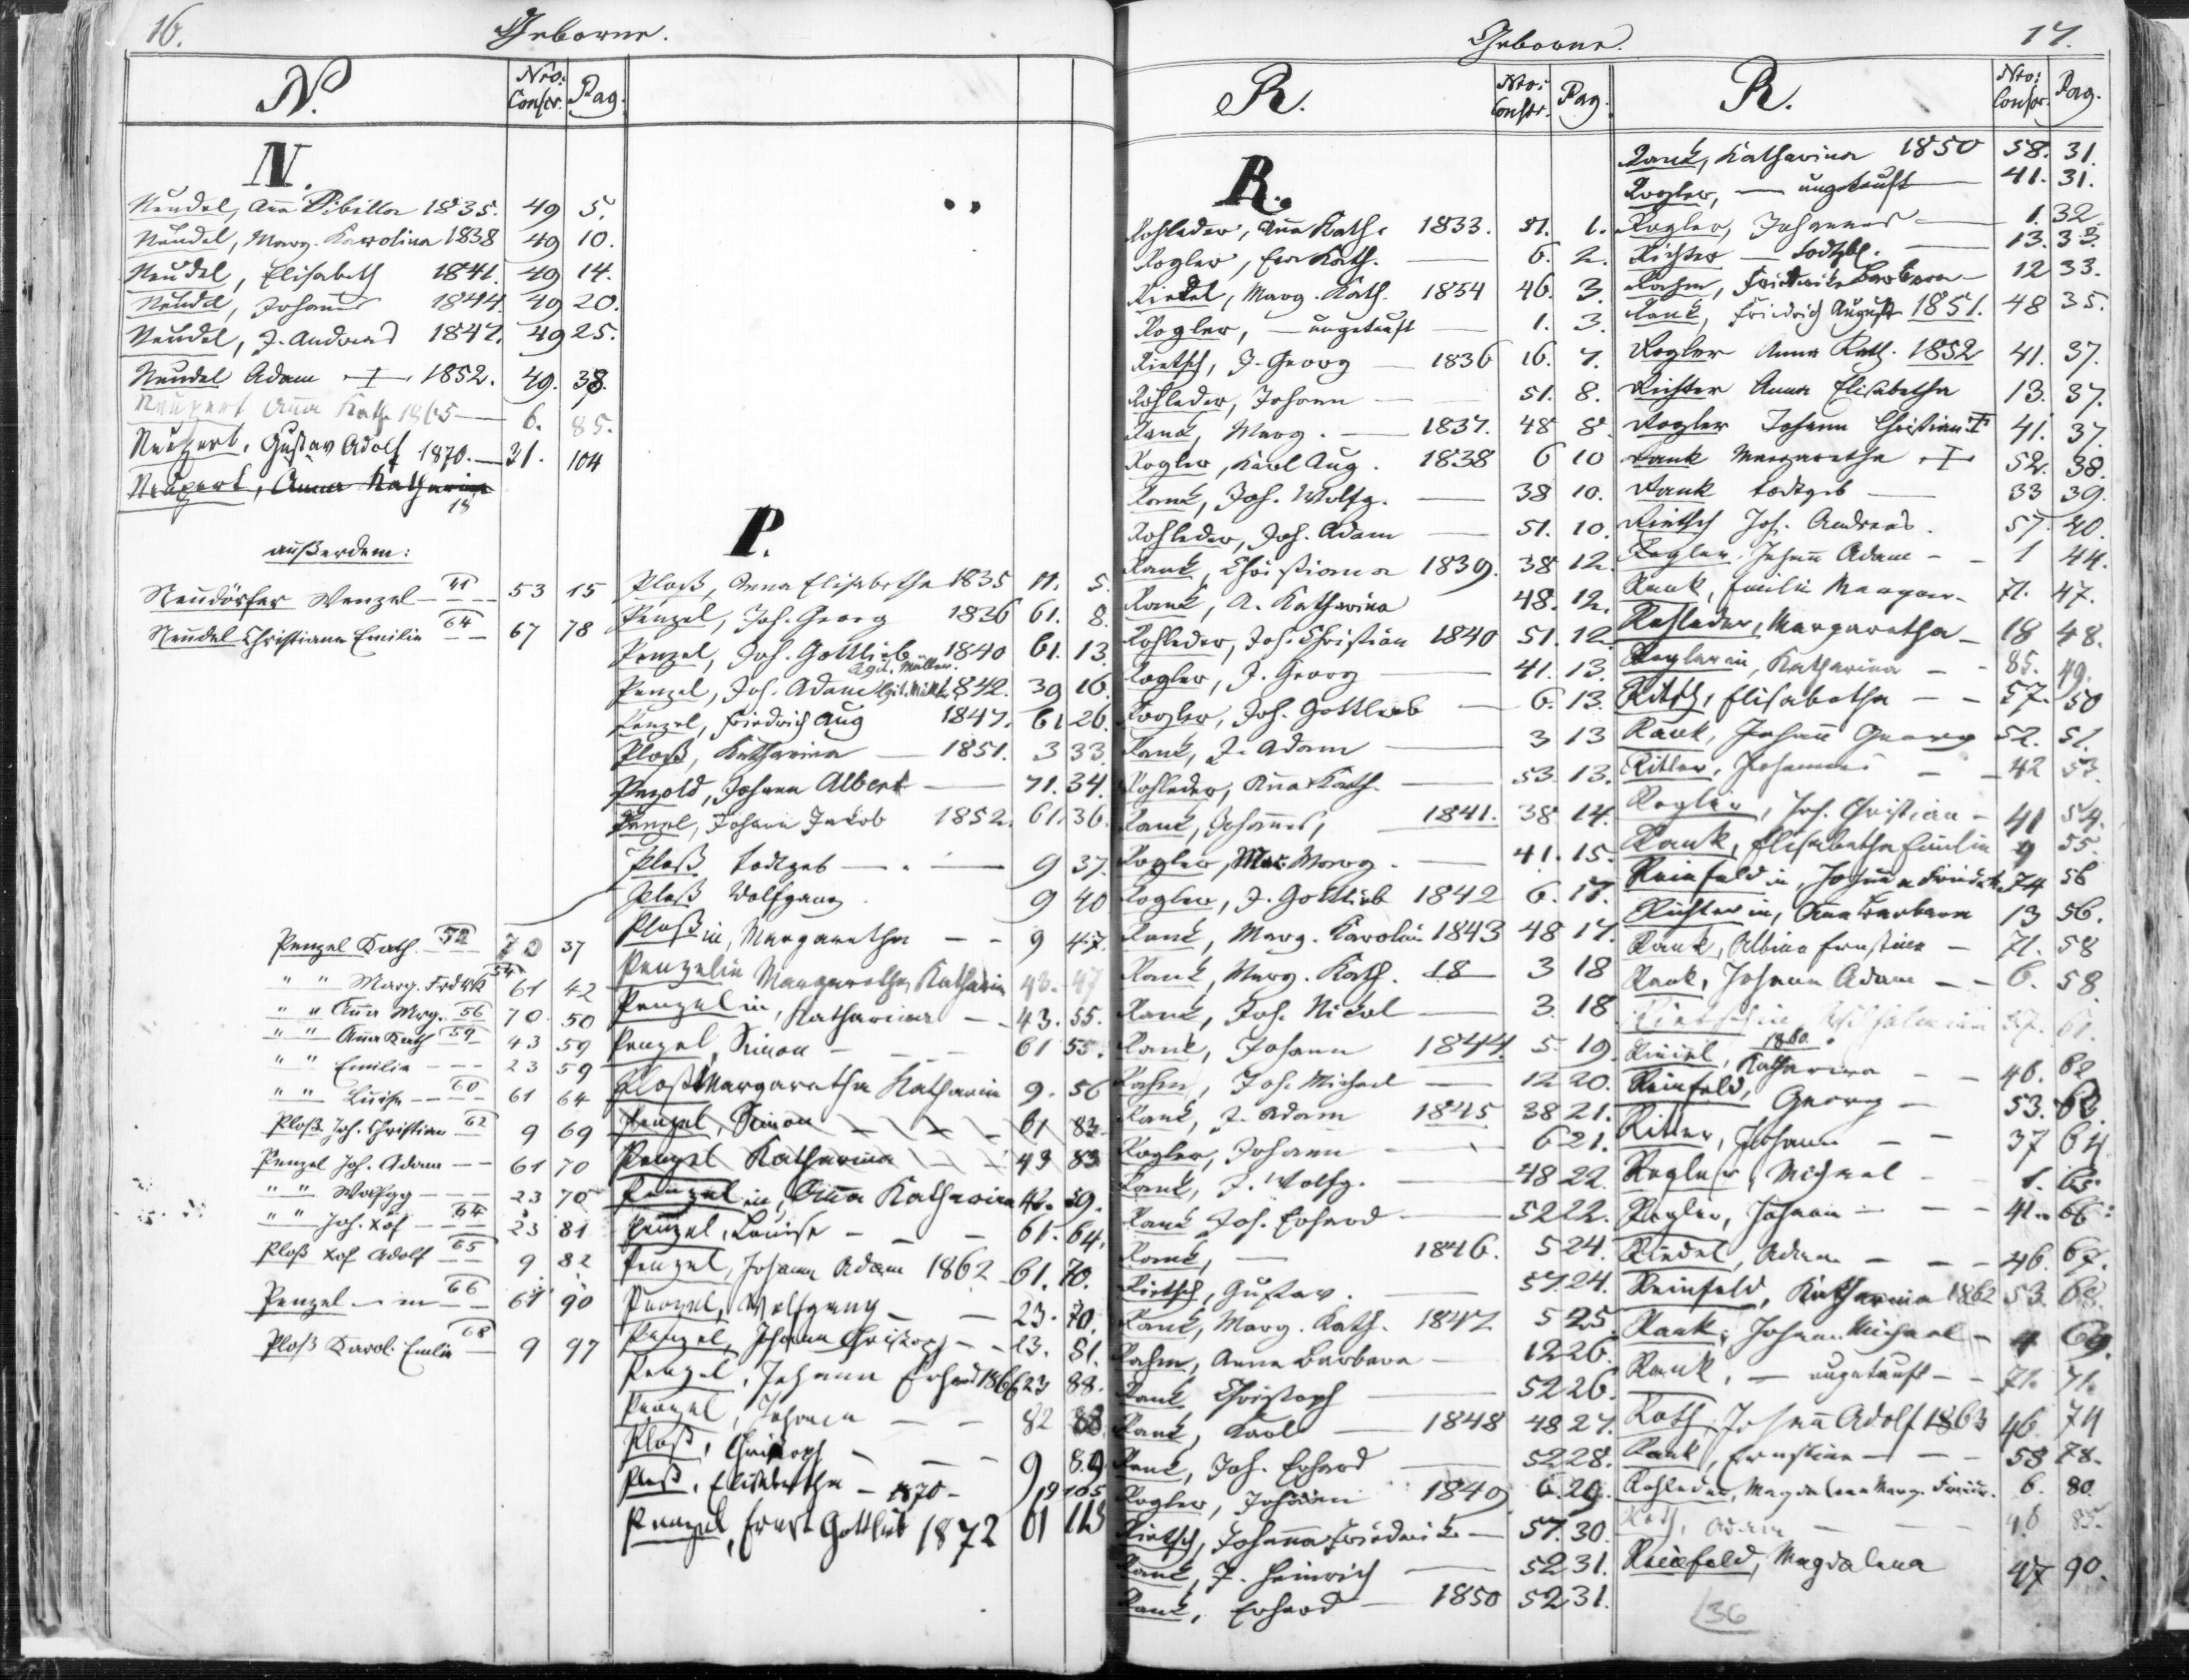 16.
Geborne.
N.
Nro: Conscr.
Pag.
N.
Neudel, Anna Sibilla 1835. 49 5.
Neudel, Marg. Karolina 1838 49 10.
Neudel, Elisabeth 1841. 49 14.
Neudel, Johann 1844. 49 20.
Neudel, J. Andreas 1847. 49 25.
Neudel Adam 1852. 49. 38.
Neupert Anna Kath 1865 — 6. 85.
Neupert, Gustav Adolf 1870. — 31. 104
Neupert, Anna Katharina
18
außerdem:
Neudörfer Wenzel — 41 — 53 15
Neudel Christiane Emilie 64 — 67 78
Penzel Kath. 52 37
" " Marg. Frdrk 54 61 42
" " Anna Mrg. 56 70 50
" " Anna Kath 59 43 59
" " Emilie — — 23 59
" " Luise — 60 61 64
Ploß Joh. Christian 62 9 69
Penzel Joh. Adam — — 61 70
" " Wolfgg — — 23 70
" " Joh. Xof — 64 23 81
Ploß Xof Adolf 65 9 82
Penzel — 66 61 90
Ploß Karol. Emilie 68 9 97
P.
Ploß, Anna Elisabetha 1835 11. 5.
Penzel, Joh. Georg 1836 61. 8.
Penzel, Joh. Gottlieb 1840 61. 13.
Penzel, Joh. Adam 1842. 39 16.
Penzel, Friedrich Aug 1847. 61 26.
Ploß, Katharina — 1851. 3 33.
Pezold, Johann Albert — 71. 34.
Penzel, Johann Jakob 1852. 61. 36.
Ploß todtgeb — 9 37.
Ploß Wolfgang 9 40
Ploßin, Margaretha — — 9 47.
Penzelin Margaretha Katharin 43. 47
Penzelin, Katharina — 43. 55.
Penzel, Simon — — 61 55.
Ploß Margaretha Katharin 9. 56
Penzel, Simon 61 83.
Penzel Katharina 43 83
Penzelin, Anna Katharina 43. 59.
Penzel, Louise — — 61. 64.
Penzel, Johann Adam 1862 61. 70.
Penzel, Wolfgang — — 23. 70.
Penzel, Johann Christoph — 23. 81.
Penzel, Johann Erhard 1866 23 88.
Penzel, Johann — — 82 88.
Ploß, Christoph — — 9 89
Ploß, Elisabetha — 1870 — 9 105
Penzel, Ernst Gottlieb 1872 61 113
Geborne.
17.
R.
Nro: Conscr.
Pag.
R.
Nro: Conscr.
Pag.
R.
Rohleder, Anna Kath. 1833. 51. 1.
Rogler, Eva Kath. — 6. 2.
Riedel, Marg. Kath. 1834 46. 3.
Rogler, — ungetauft — 1. 3.
Rietsch, J. Georg — 1836 16. 7.
Rohleder, Johann — 51. 8.
Rank, Marg. — 1837. 48 8.
Rogler, Karl Aug. 1838 6 10
Rank, Joh. Wolfg. — 38 10.
Rohleder, Joh. Adam — 51. 10.
Rank, Christiana 1839. 38 12.
Rank, A. Katharina 48. 12.
Rohleder, Joh. Christian 1840 51. 12.
Rogler, J. Georg — 41. 13.
Rogler, Joh. Gottlieb — 6. 13.
Rank, J. Adam — 3 13
Rohleder, Anna Kath. — 53. 13.
Rank, Johannes, 1841. 38 14.
Rogler, Marg. — 41. 15.
Rogler, J. Gottlieb 1842 6. 17.
Rank, Marg. Karolin 1843 48 17.
Rank, Marg. Kath. 18— 3 18
Rank, Joh. Nikol — 3. 18
Rank, Johann 1844. 5. 19.
Rahm, Joh. Michael — 12 20.
Rank, J. Adam 1845 38 21.
Rogler, Johann — 6 21.
Rank, J. Wolfg. — 48 22.
Rank Joh. Erhard — 52 22.
Rank, — 1846. 5 24.
Rietsch, Gustav. — 57. 24.
Rank, Marg. Kath. 1847 5 25.
Rahm, Anna Barbara — 12 26.
Rank Christoph — 52 26.
Rank, Karl — 1848 48 27.
Rank, Joh. Erhard — 52 28.
Rogler, Johann 1849. 6. 29.
Rietsch, Johanna Friederike — 57. 30.
Rank, J. Heinrich — 52 31.
Rank, Erhard — 1850 52 31.
Rank, Katharina 1850 58. 31.
Rogler, — ungetauft — 41. 31.
Rogler, Johannes — 1. 32.
Richter — todtgeb. — 13. 33.
Rahm, Friedrike Barbara — 12 33.
Rank, Friedrich August 1851. 48 35.
Rogler Anna Kath. 1852 41. 37.
Richter Anna Elisabetha 13. 37.
Rogler Johann Christian 41. 37.
Rank Margaretha 52. 38.
Rank todtgeb — 33 39.
Rietsch Joh. Andreas. 57. 40.
Rogler, Johann Adam — 1 44.
Rank, Emilie Margar. 71. 47.
Rohleder, Margaretha — 18 48.
Roglerin, Katharina — 85. 49.
Ritsch, Elisabetha — — 57. 50
Rank, Johann Georg 52. 51.
Ritter, Johannes — 42 53.
Rogler, Joh. Christian — 41 54.
Rank, Elisabetha Emilie 9 55.
Reinfeldin, Johanna Friedrk 74 56
Richterin, Anna Barbara 13 56.
Rank, Albina Ernstina — 71. 58
Rank, Johann Adam — — 6. 58.
57. 61.
1860.
Riedel, Katharina — — 46. 62
Reinfeld, Georg — 53. 62.
Ritter, Johann — — 37 64
Rogler, Michael — 1. 65.
Rogler, Johann — — 41. 66.
Riedel, Adam — — 46. 67.
Reinfeld, Katharina 1862 53. 68.
Rank, Johann Michael — 4 69.
Rank, — ungetauft — 71. 71.
Roth, Johann Adolf 1863 46 74
Rank, Ernstine — — 58 78.
Rohleder, Magdalena Marg. Friedr. 6. 80.
Roth, Adam — 46 85.
Reinfeld, Magdalena 47 90.
36